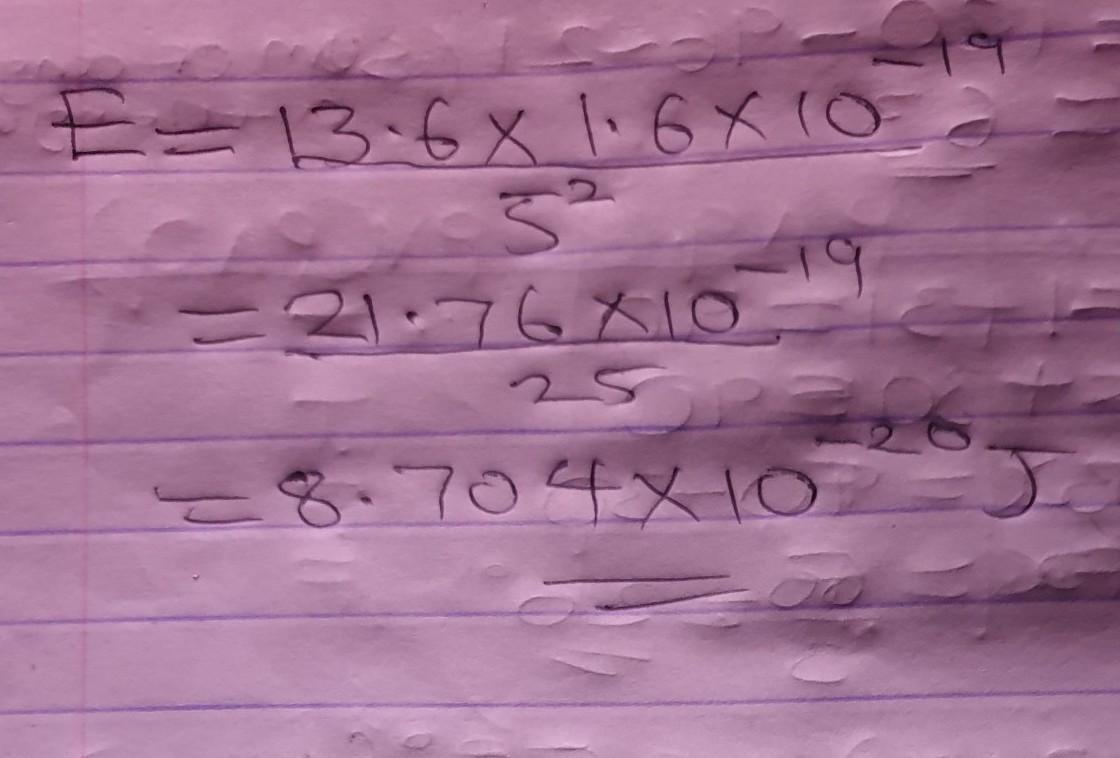 E = 13.6 × 1.6 × 10⁻¹⁹
5²
= 21.76 × 10⁻¹⁹
25
= 8.704 × 10⁻²⁰ J